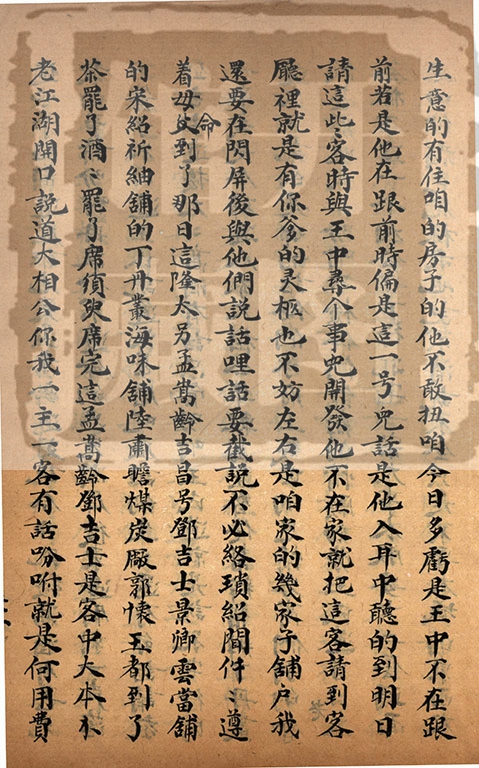 生意的有住咱的房子的他不敢扭咱今日多虧是王中不在跟
前若是他在跟前時偏是這一号兒話是他入耳中聽的到明日
請這些客時與王中尋个事兒開發他不在家就把這客請到客
廳裡就是有你爹的灵柩也不妨左右是咱家的幾家子舖户我
還要在閃屏後與他們說話哩話要截說不必絡瑣紹聞件〻遵
着母命到了那日這隆太号孟嵩齡吉昌号鄧吉士景卿雲當舖
的宋紹祈紬舖的丁丹叢海味舖陸肅瞻煤炭廠郭懷玉都到了
茶罷了酒〻罷了席須臾席完這孟嵩齡鄧吉士是客中大本不
老江湖開口說道大相公你我一主一客有話吩咐就是何用費